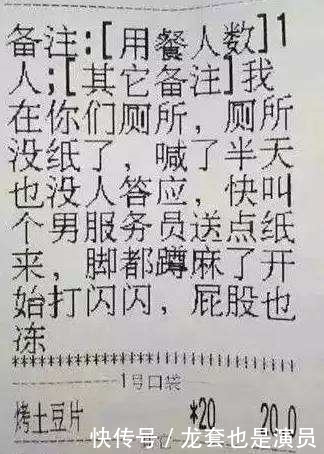 备注:[用餐人数]1
人;[其它备注]我
在你们厕所，厕所
没纸了，喊了半天
也没人答应，快叫
个男服务员送点纸
来，脚都蹲麻了开
始打闪闪，屁股也
冻
1号口袋
烤土豆片 *20 20.0
快传号/龙套也是演员